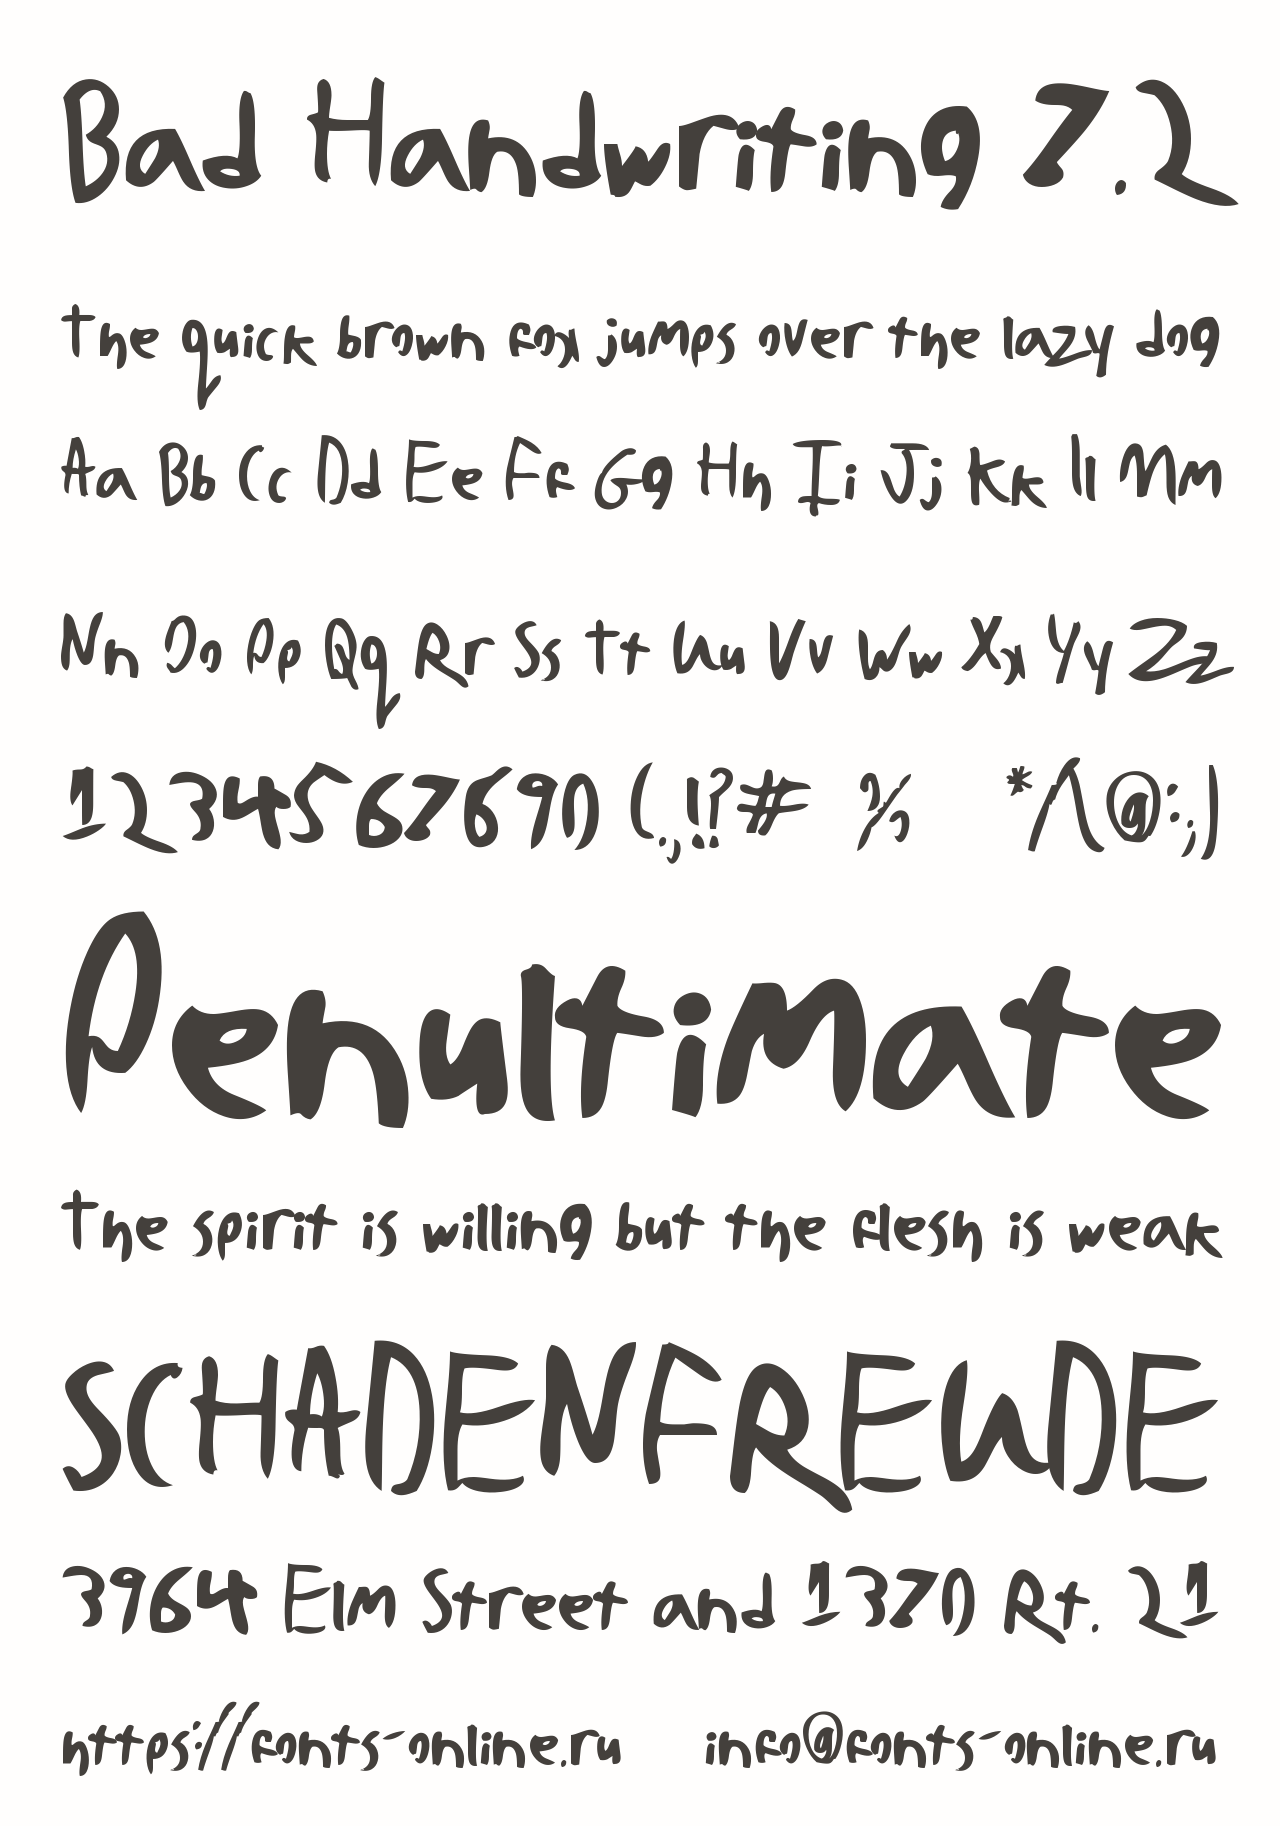 Bad Handwriting 7.2
The quick brown fox jumps over the lazy dog
Aa Bb Cc Dd Ee Ff Gg Hh Ii Jj Kk Ll Mm
Nn Oo Pp Qq Rr Ss Tt Uu Vv Ww Xx Yy Zz
1234567690 (.,!?# % */\@:;)
Penultimate
The spirit is willing but the flesh is weak
SCHADENFREUDE
3964 Elm Street and 1370 Rt. 21
https://fonts-online.ru info@fonts-online.ru